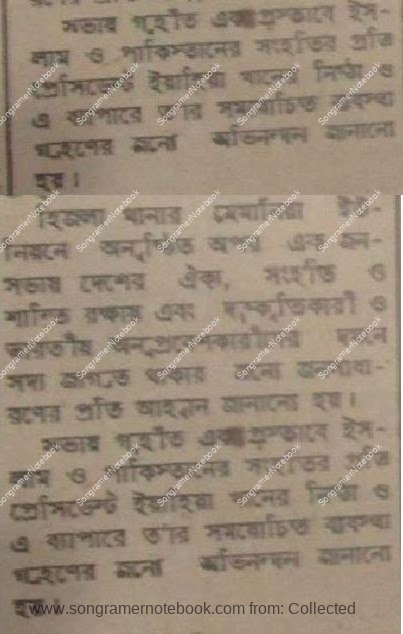 সভায় গৃহীত এক প্রস্তাবে ইস-
লাম ও পাকিস্তানের সংহতির প্রতি
প্রেসিডেন্ট ইয়াহিয়া খানের নিষ্ঠা ও
এ ব্যাপারে তাঁর সময়োচিত ব্যবস্থা
গ্রহণের জন্যে অভিনন্দন জানানো
হয়।
হিজলা থানার মেমানিয়া ইউ-
নিয়নে অনুষ্ঠিত অপর এক জন-
সভায় দেশের ঐক্য, সংহতি ও
শান্তি রক্ষায় এবং দুষ্কৃতিকারী ও
ভারতীয় অনুপ্রবেশকারীদের দমনে
সদা জাগ্রত থাকার জন্যে জনসাধা-
রণের প্রতি আহ্বান জানানো হয়।
সভায় গৃহীত এক প্রস্তাবে ইস-
লাম ও পাকিস্তানের সংহতির প্রতি
প্রেসিডেন্ট ইয়াহিয়া খানের নিষ্ঠা ও
এ ব্যাপারে তাঁর সময়োচিত ব্যবস্থা
গ্রহণের জন্যে অভিনন্দন জানানো
হয়।
www.songramernotebook.com from: Collected